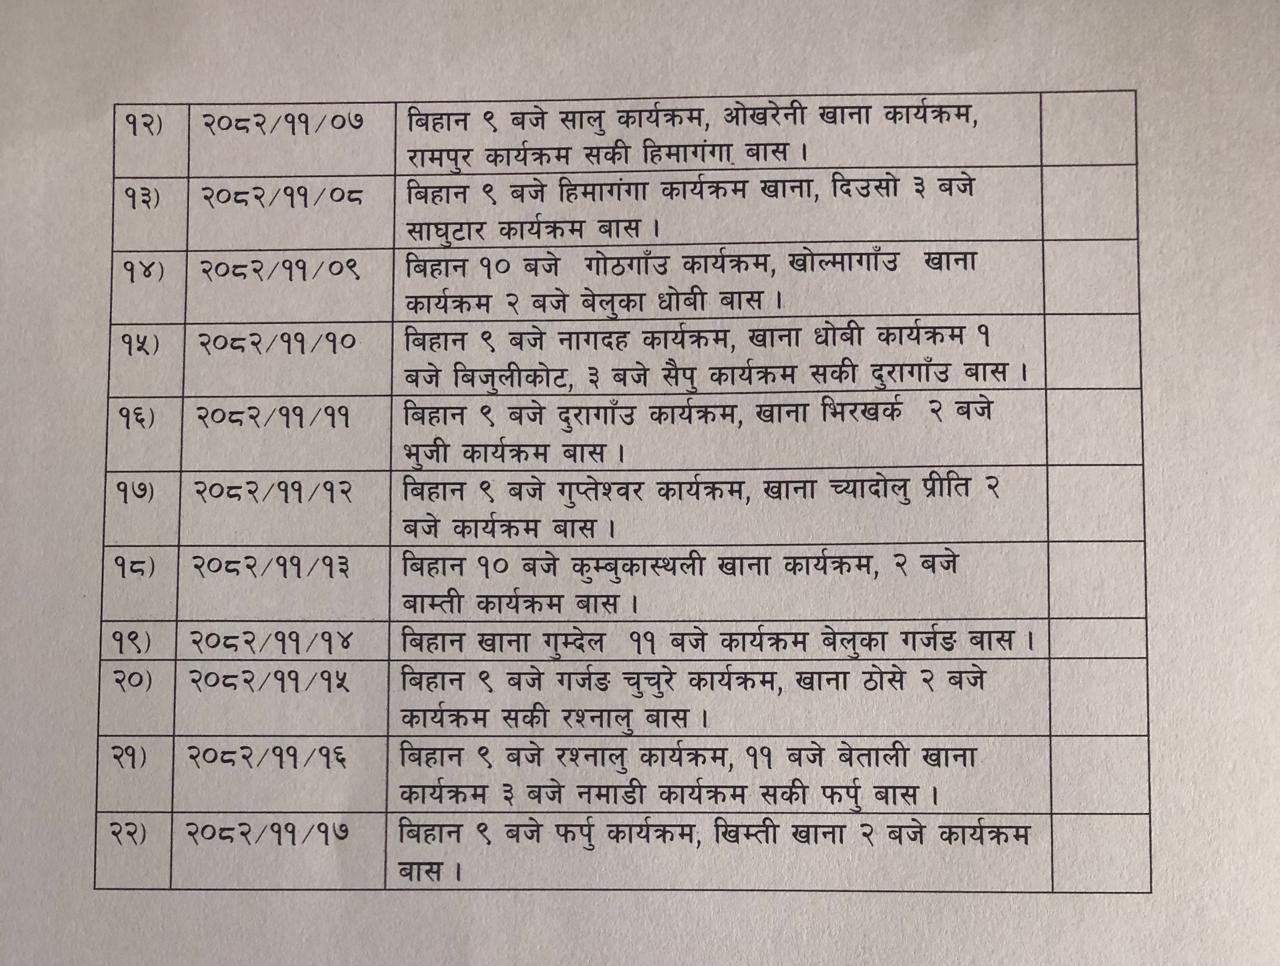 १२) २०८२/११/०७ बिहान ९ बजे सालु कार्यक्रम, ओखरेनी खाना कार्यक्रम,
रामपुर कार्यक्रम सकी हिमागंगा बास ।
१३) २०८२/११/०८ बिहान ९ बजे हिमागंगा कार्यक्रम खाना, दिउसो ३ बजे
साघुटार कार्यक्रम बास ।
१४) २०८२/११/०९ बिहान १० बजे गोठगाँउ कार्यक्रम, खोल्मागाँउ खाना
कार्यक्रम २ बजे बेलुका धोबी बास ।
१५) २०८२/११/१० बिहान ९ बजे नागदह कार्यक्रम, खाना धोबी कार्यक्रम १
बजे बिजुलीकोट, ३ बजे सैपु कार्यक्रम सकी दुरागाँउ बास ।
१६) २०८२/११/११ बिहान ९ बजे दुरागाँउ कार्यक्रम, खाना भिरखर्क २ बजे
भुजी कार्यक्रम बास ।
१७) २०८२/११/१२ बिहान ९ बजे गुप्तेश्वर कार्यक्रम, खाना च्यादोलु प्रीति २
बजे कार्यक्रम बास ।
१८) २०८२/११/१३ बिहान १० बजे कुम्बुकास्थली खाना कार्यक्रम, २ बजे
बाम्ती कार्यक्रम बास ।
१९) २०८२/११/१४ बिहान खाना गुम्देल ११ बजे कार्यक्रम बेलुका गर्जङ बास ।
२०) २०८२/११/१५ बिहान ९ बजे गर्जङ चुचुरे कार्यक्रम, खाना ठोसे २ बजे
कार्यक्रम सकी रश्नालु बास ।
२१) २०८२/११/१६ बिहान ९ बजे रश्नालु कार्यक्रम, ११ बजे बेताली खाना
कार्यक्रम ३ बजे नमाडी कार्यक्रम सकी फर्पु बास ।
२२) २०८२/११/१७ बिहान ९ बजे फर्पु कार्यक्रम, खिम्ती खाना २ बजे कार्यक्रम
बास ।